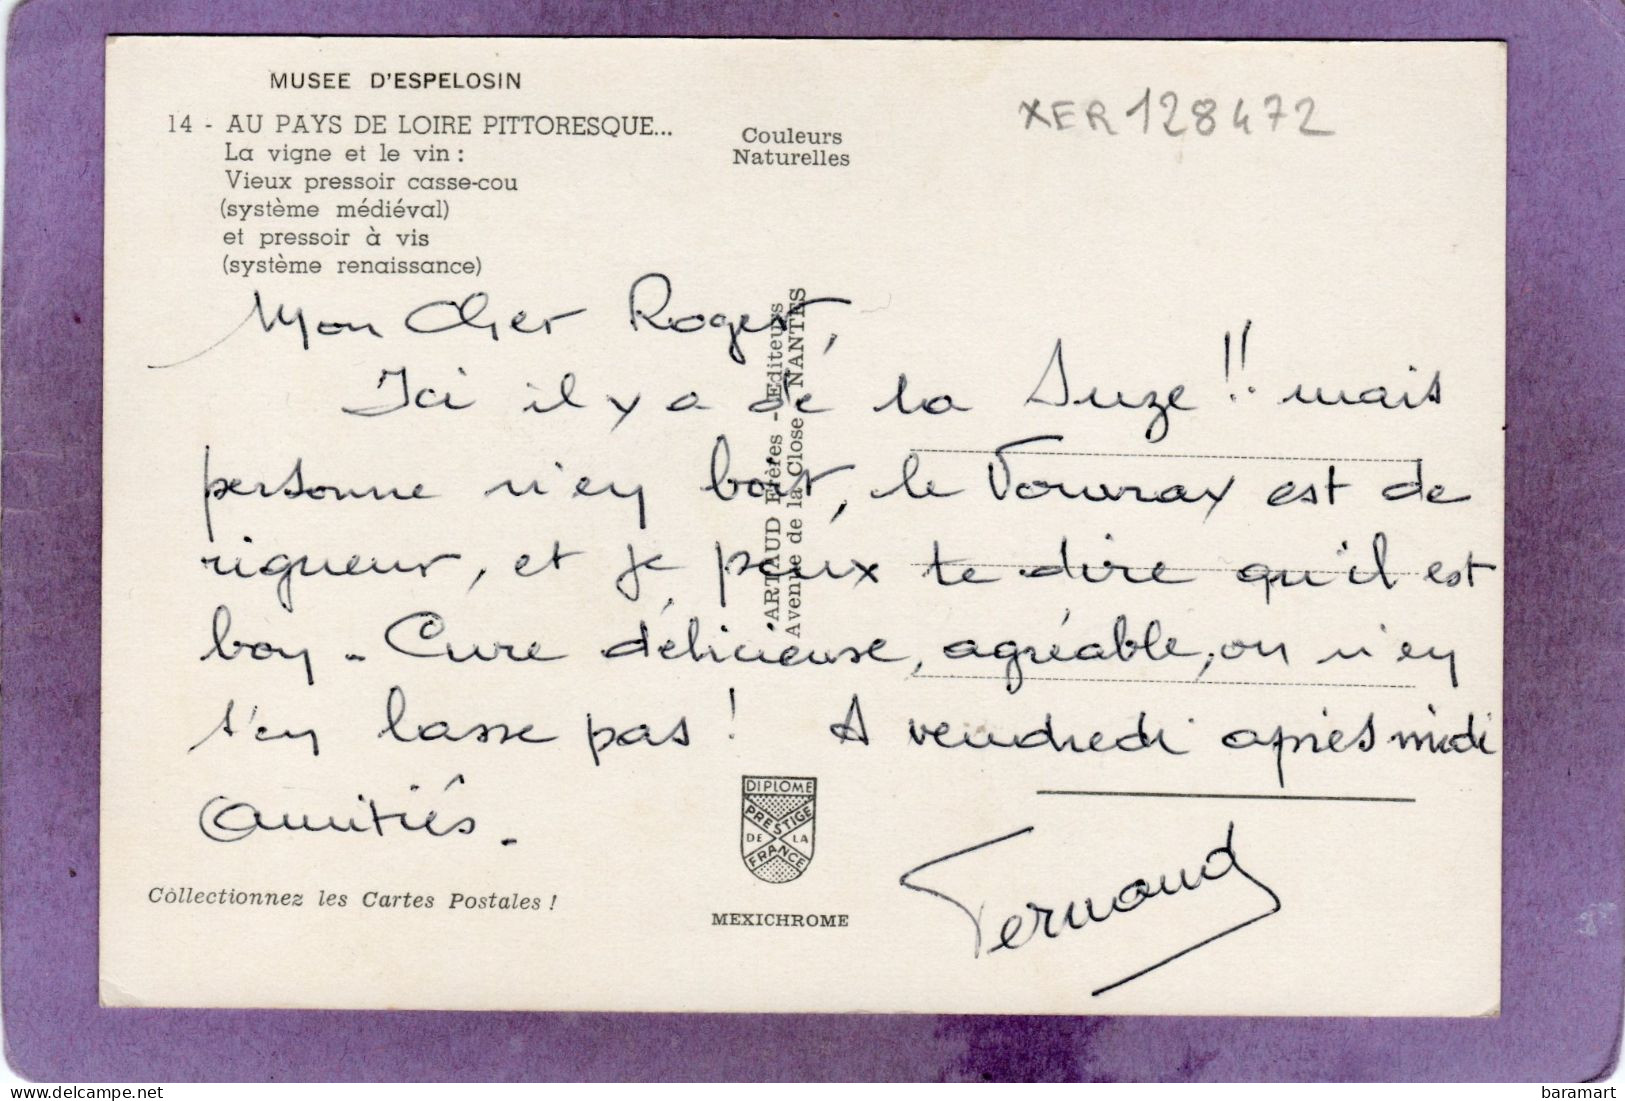 MUSEE D'ESPELOSIN
14 - AU PAYS DE LOIRE PITTORESQUE...
La vigne et le vin :
Vieux pressoir casse-cou
(système médiéval)
et pressoir à vis
(système renaissance)
Couleurs
Naturelles
XER128472
Mon Cher Roger,
Ici il y a de la Suze !! mais
personne n'en boit, le Vouvray est de
rigueur, et je peux te dire qu'il est
bon - Cure délicieuse, agréable, on n'en
s'en lasse pas ! A vendredi après midi
Amitiés.
Fernand
ARTAUD Frères - Editeurs
Avenue de la Close - NANTES
DIPLOME
PRESTIGE
DE LA
FRANCE
MEXICHROME
Collectionnez les Cartes Postales !
delcampe.net
baramart